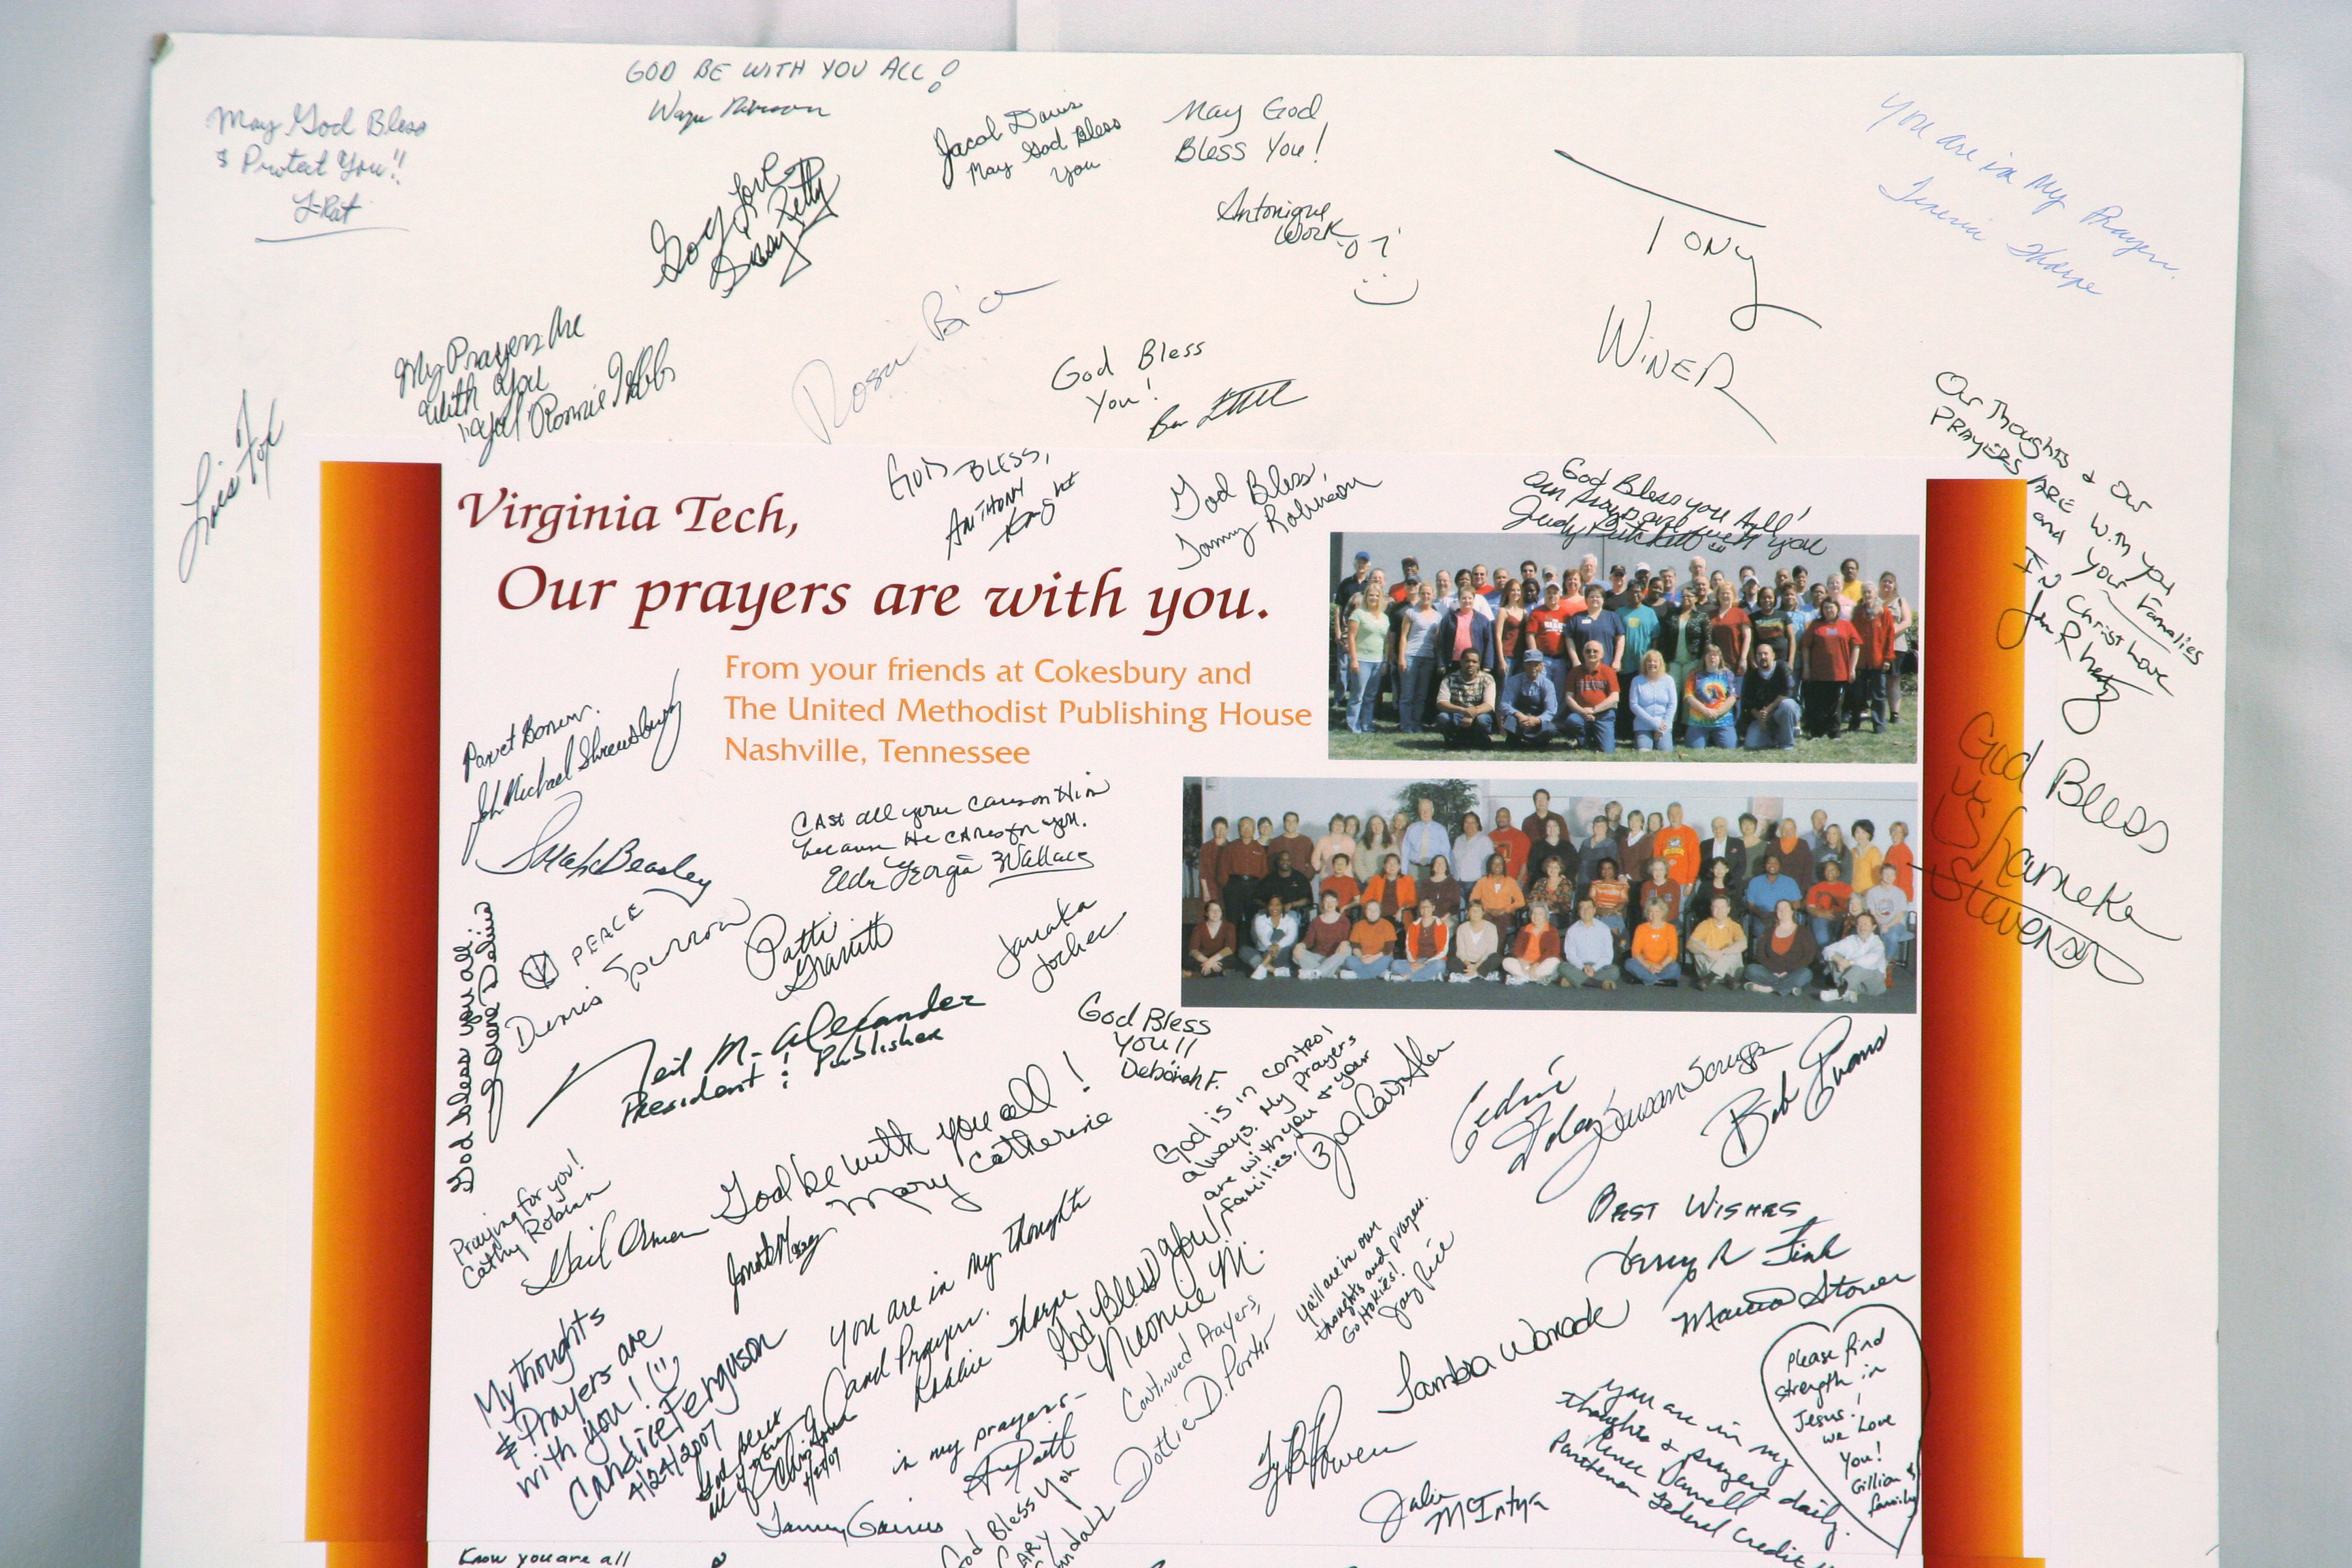 GOD BE WITH YOU ALL!
Wayne
May God Bless
& Protect You!!
Jacob Davis
May God Bless
You
May God
Bless You!
Antonique
Work
:)
You are in My Prayers.
Sharpe
TONY
WINER
God love
Sissy Petty
My Prayers Are
With You
Ronnie Hobbs
God Bless
You!
Lois Fox
Our Thoughts & Our
PRAYERS ARE With you
and Your Families
IN Christ Love
God BLESS,
ANTHONY
Knight
God Bless,
Tammy Robinson
God Bless you All!
Our prayers are with you
Judy Puckett
Virginia Tech,
Our prayers are with you.
From your friends at Cokesbury and
The United Methodist Publishing House
Nashville, Tennessee
John Michael Shrewsbury
God Bless
Shameka
Stevenson
CAst all your cares on Him
because He CAres for you.
Elder Georgia Wallace
Sarah Beasley
PEACE
Dennis Spurrow
Patti
Janaka
God bless you all
Neil M. Alexander
President & Publisher
God Bless
You!!
Deborah F.
God is in control
always. My prayers
are with you & your
families.
Cedric
Foley
Susan Scruggs
Bob Evans
God be with you all!
Mary Catherine
Praying for you!
Cathy Robian
Gail Orman
Best Wishes
Larry R Fink
Marcia Stoner
You are in my thoughts
and Prayers.
Robbie Sharpe
God Bless you!
Niconie M.
Ya'll are in our
thoughts and prayers.
Go Hokies!
Jay Rice
My thoughts
& Prayers are
with you!
Candice Ferguson
4/24/2007
Continued Prayers,
Dottie D. Porter
in my prayers-
Please find
strength in
Jesus!
we Love
You!
Gillian &
family
You are in my
thoughts & prayers daily.
Renee Darnell
Parthenon Federal Credit
Julie
McIntyre
God Bless You
Know you are all